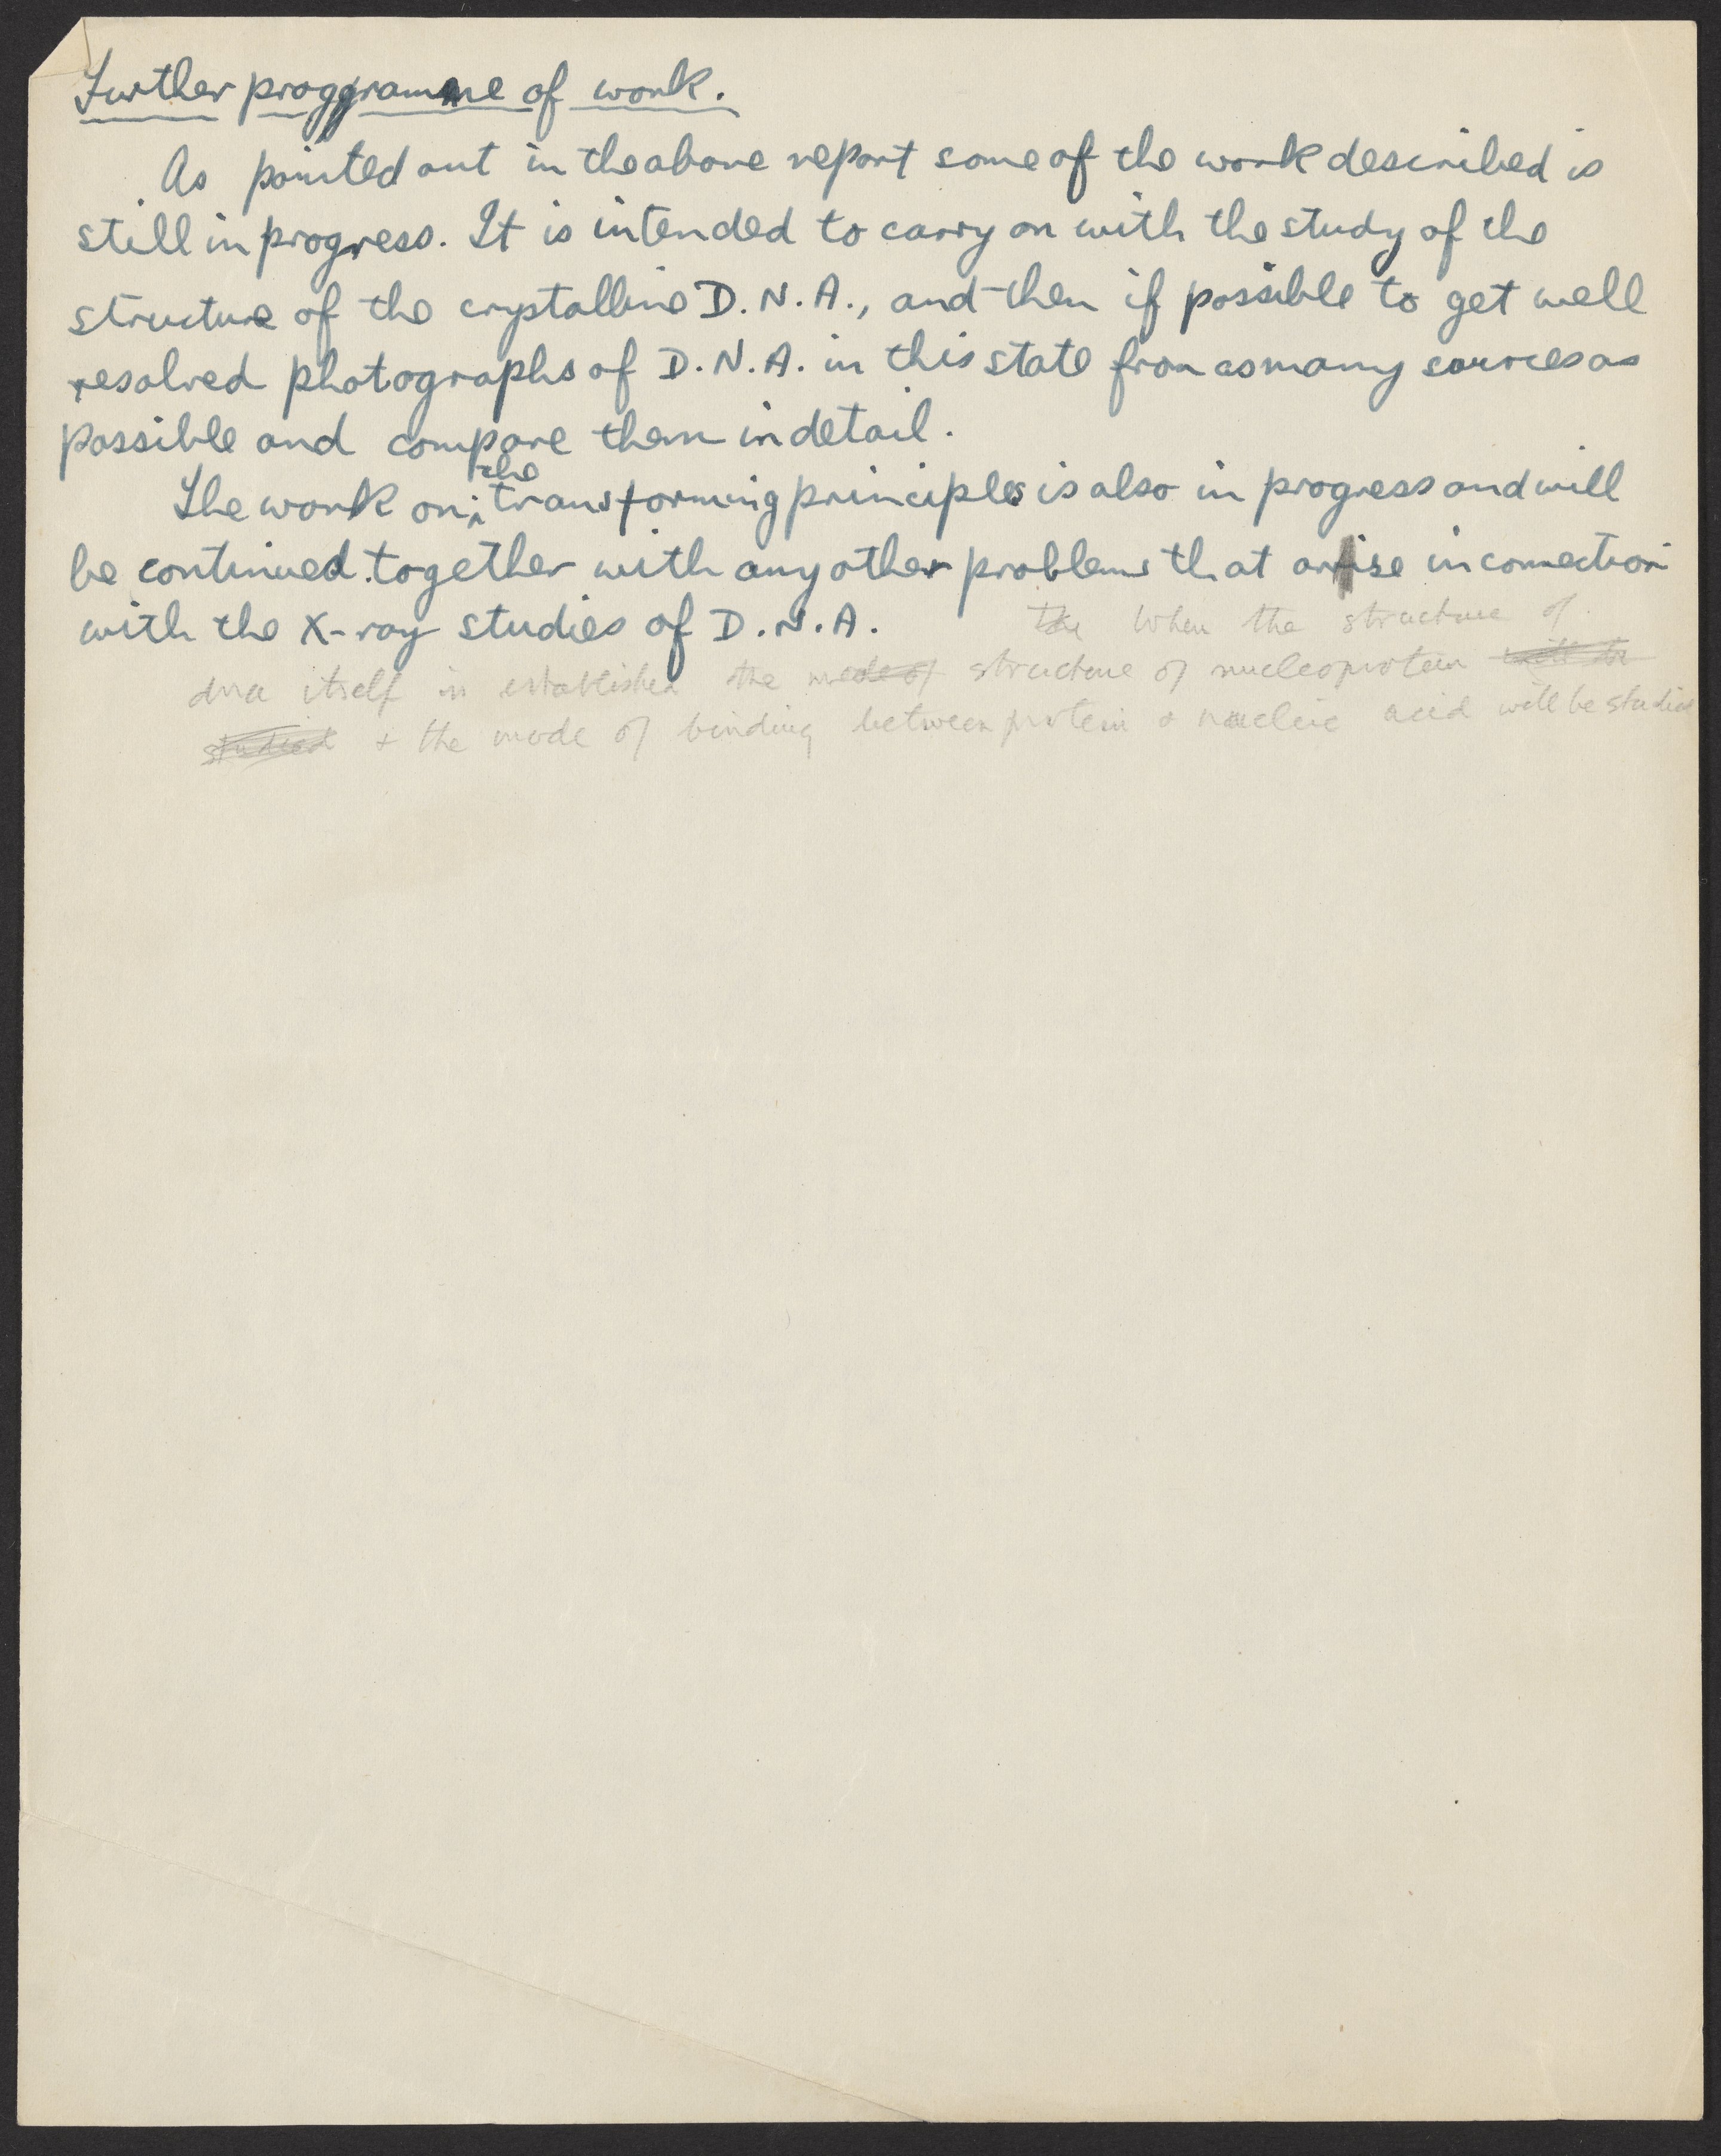 Further proggramme of work.
As pointed out in the above report some of the work described is
still in progress. It is intended to carry on with the study of the
structure of the crystalline D.N.A., and then if possible to get well
resolved photographs of D.N.A. in this state from as many sources as
possible and compare them in detail.
the
The work on transforming principles is also in progress and will
be continued together with any other problems that arise in connection
with the X-ray studies of D.N.A.
the When the structure of
dna itself is established the mode of structure of nucleoprotein will be
studied + the mode of binding between protein & nucleic acid will be studied